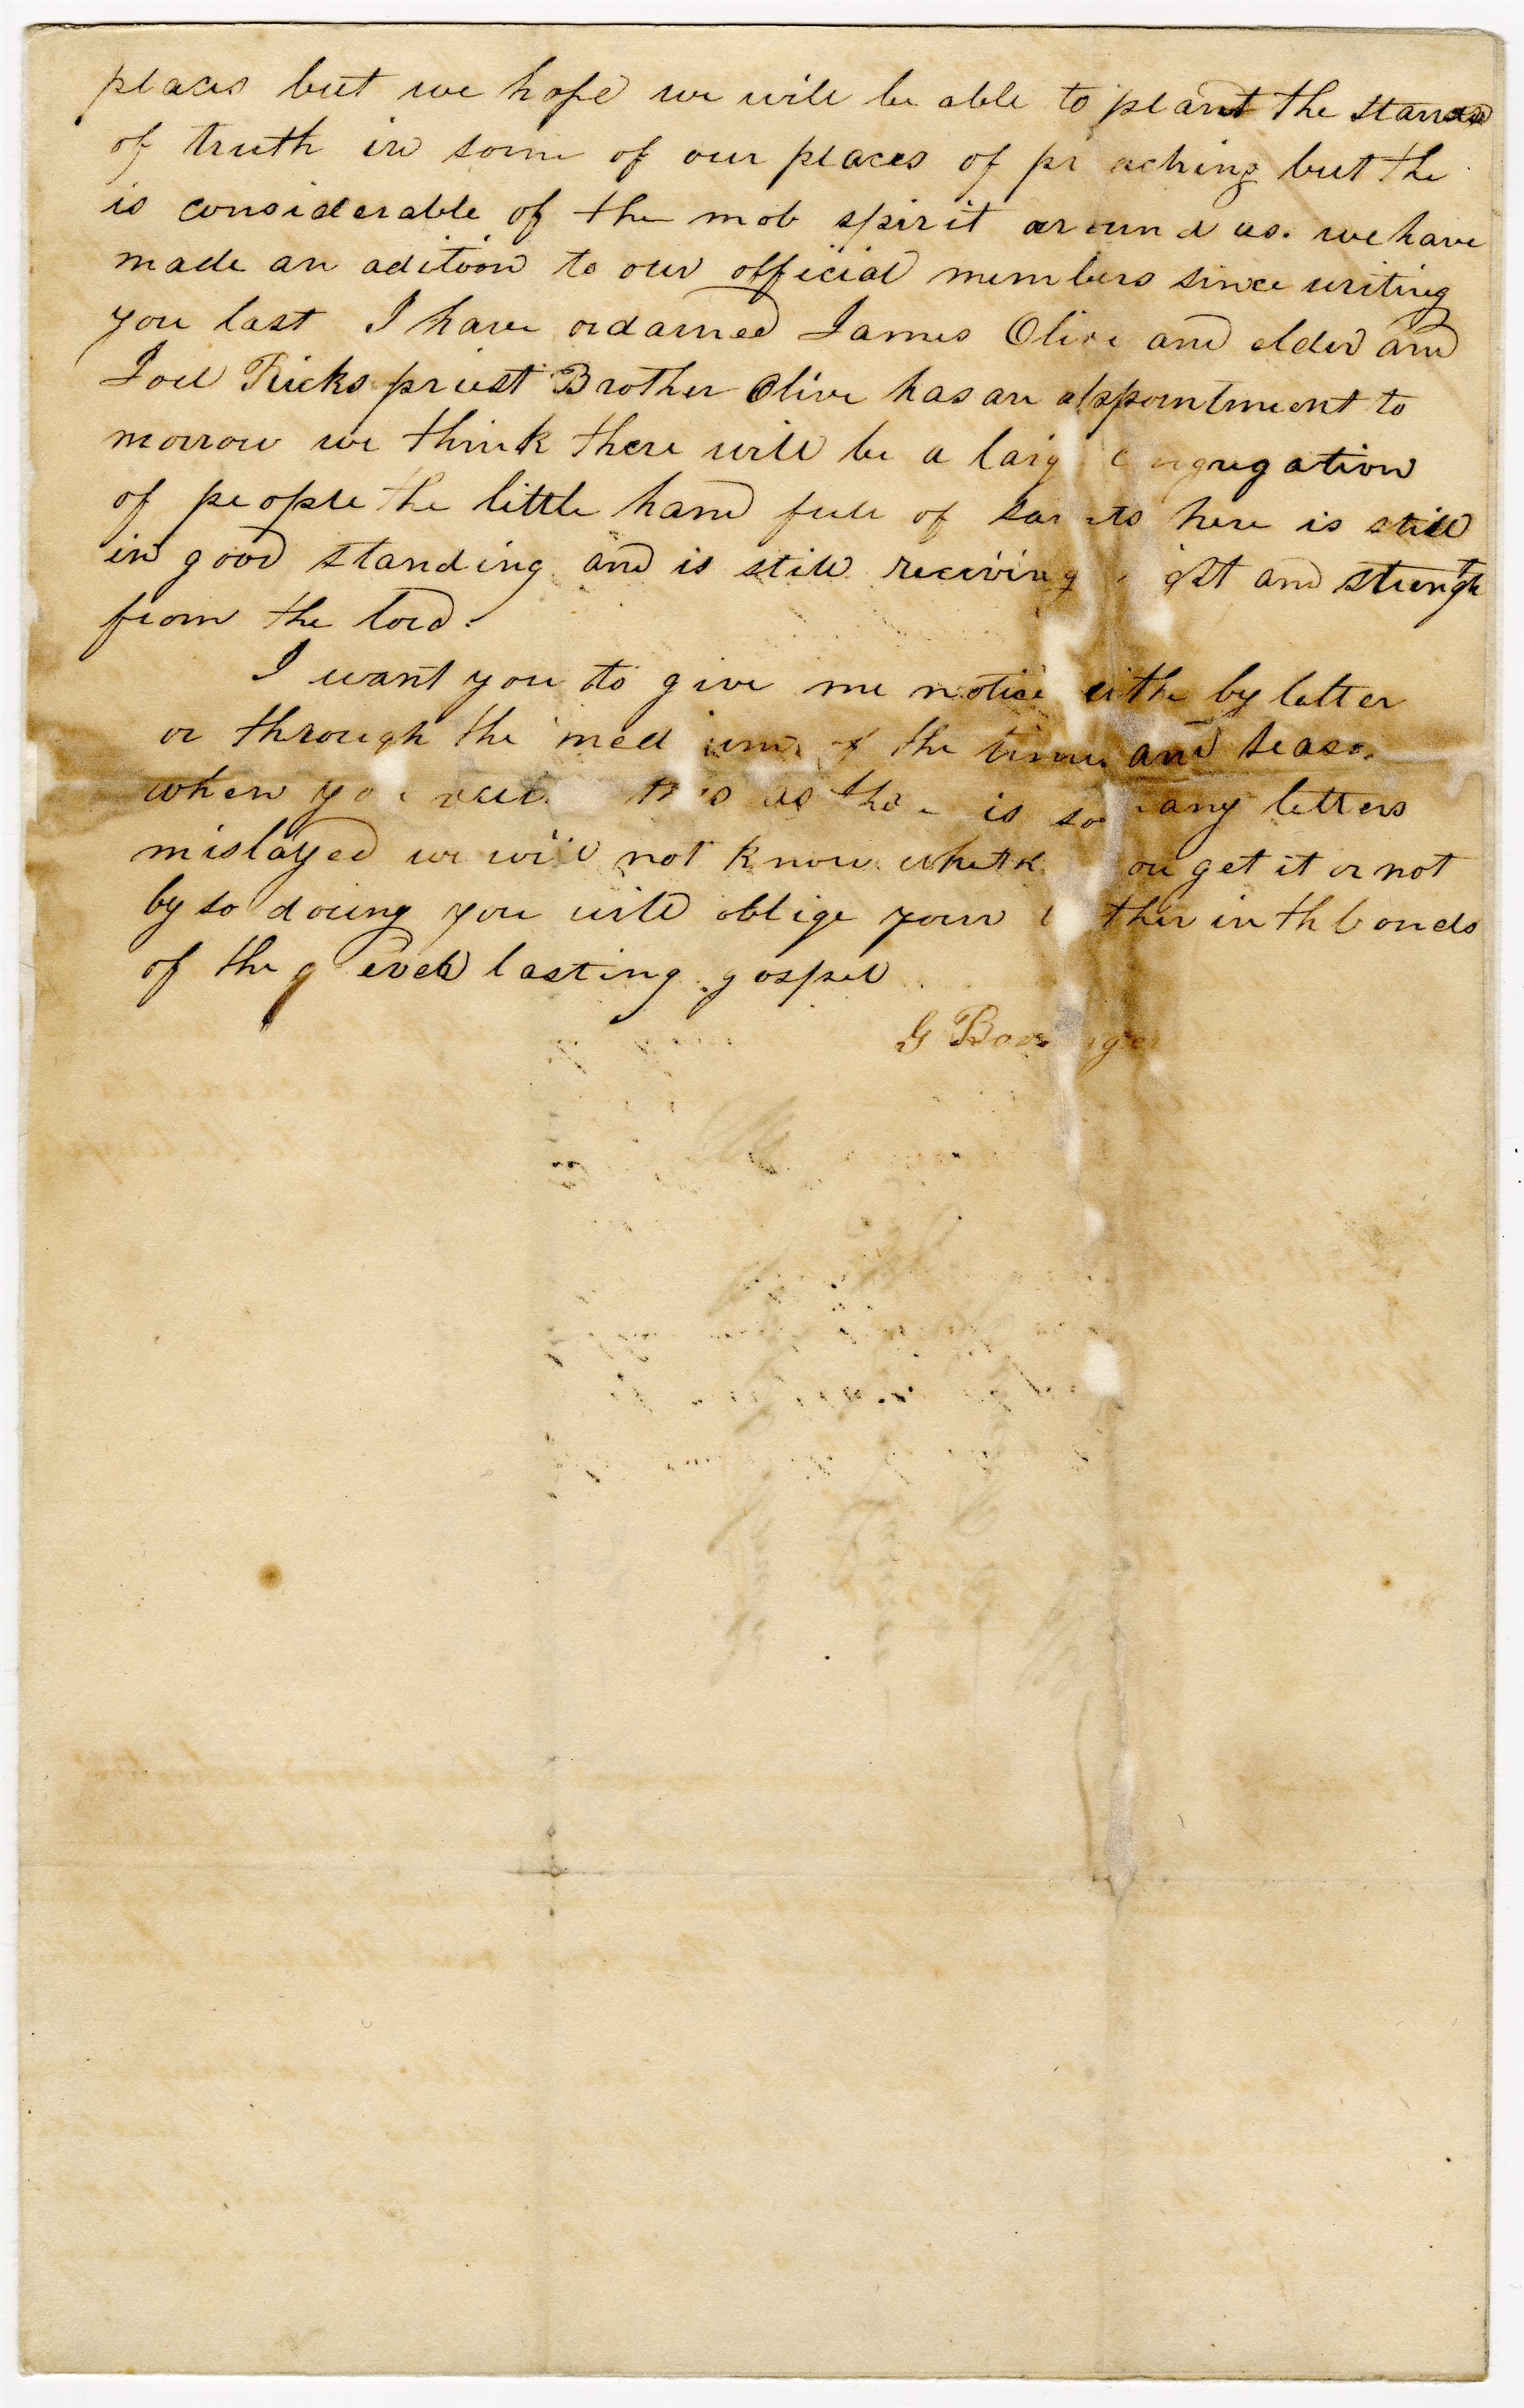 places but we hope we will be able to plant the
of truth in some of our places of pr aching but the
is considerable of the mob spirit around us. we have
made an adition to our official members since writing
you last I have ordained James Olive and elder and
Joel Ricks priest Brother Olive has an appointment to
morrow we think there will be a larg c ngregation
of people the little hand full of sai ts here is still
in good standing and is still receiving and strength
from the lord.
I want you to give me notice eithe by letter
or through the med ium of the times and seaso
when yo as the is so any letters
mislayed we will not know wheth ou get it or not
by so doing you will oblige your ther in th bonds
of the g everlasting gospel
G